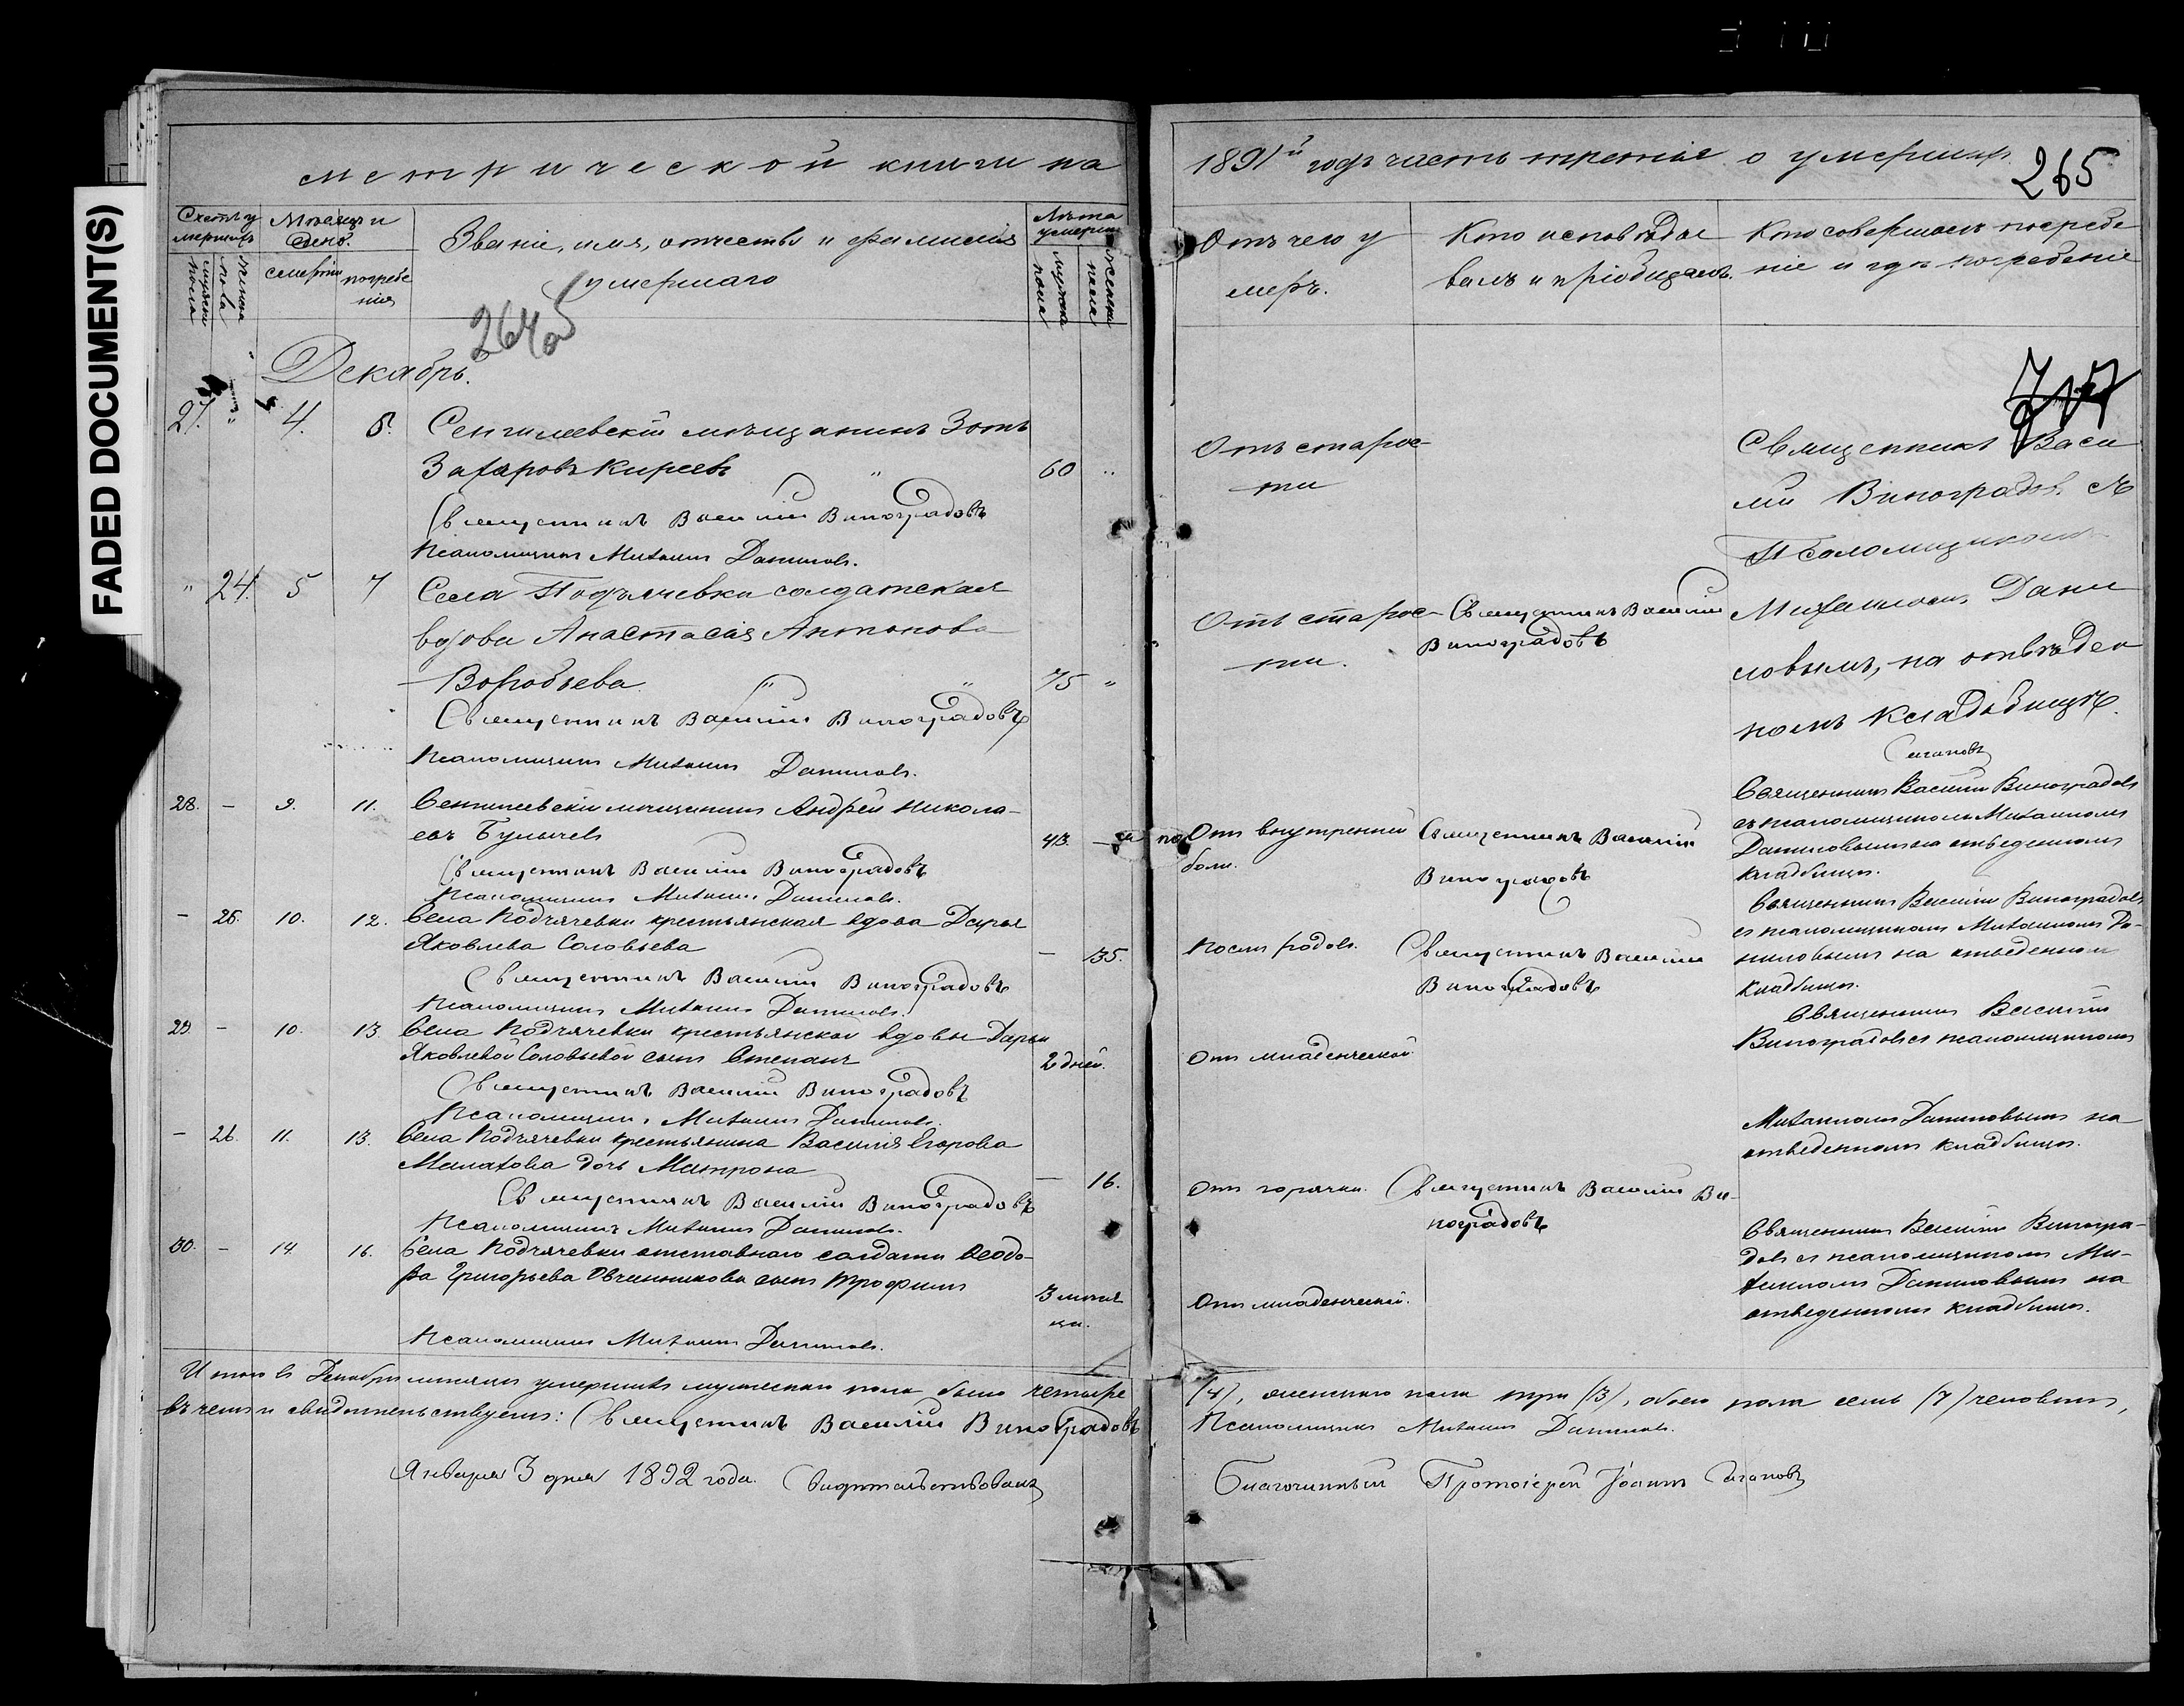 FADED DOCUMENT(S)
метрической книги на
1891й годъ часть третія о умершихъ
265
Счетъ умершихъ
Мѣсяцъ и день.
Званіе, имя, отчество и фамилія умершаго
Лѣта умерш.
мужска пола
женска пола
смерти
погребенія
мужска пола
женска пола
Отъ чего умеръ.
Кто исповѣдывалъ и пріобщалъ.
Кто совершалъ погребеніе и гдѣ погребенiе
264 об
Декабрь.
27. " 4. 6. Сенгилеевскій мѣщанинъ Зотъ
Захаровъ Киреевъ " 60 "
Отъ старости
Священникъ Василій Виноградовъ съ
Псаломщикомъ
Михаиломъ Даниловымъ, на отведеномъ кладбищѣ.
Священникъ Василій Виноградовъ
Псаломщикъ Михаилъ Даниловъ.
" 24. 5 7 Села Подъячевки солдатская
вдова Анастасія Антонова
Воробьева " " 75 "
Отъ старости.
Священникъ Василій
Виноградовъ
Священникъ Василій Виноградовъ
Псаломщикъ Михаилъ Даниловъ.
28. — 9. 11. Сенгилеевскій мѣщанинъ Андрей Николаевъ Булычевъ
43. —
Отъ внутренней боли.
Священникъ Василій
Виноградовъ
Священникъ Василій Виноградовъ
съ псаломщикомъ Михаиломъ
Даниловымъ на отведенномъ
кладбищѣ.
Священникъ Василій Виноградовъ
Псаломщикъ Михаилъ Даниловъ.
— 25. 10. 12. Села Подъячевки крестьянская вдова Дарья
Яковлева Соловьева
— 35.
Послѣ родовъ.
Священникъ Василій
Виноградовъ
Священникъ Василій Виноградовъ
съ псаломщикомъ Михаиломъ Даниловымъ на отведенномъ
кладбищѣ.
Священникъ Василій Виноградовъ
Псаломщикъ Михаилъ Даниловъ.
29. — 10. 13. Села Подъячевки крестьянской вдовы Дарьи
Яковлевой Соловьевой сынъ Степанъ
2 дней.
Отъ младенческой
Священникъ Василій
Виноградовъ съ псаломщикомъ
Михаиломъ Даниловымъ на
отведенномъ кладбищѣ.
Священникъ Василій Виноградовъ
Псаломщикъ Михаилъ Даниловъ.
— 26. 11. 13. Села Подъячевки крестьянина Василія Егорова
Малахова дочь Матрона
— 16.
Отъ горячки.
Священникъ Василій Виноградовъ
Священникъ Василій Виноградовъ
Псаломщикъ Михаилъ Даниловъ.
30. — 14. 16. Села Подъячевки отставнаго солдата Ѳеодора Григорьева Овчинникова сынъ Трофимъ
3 мѣсяца.
Отъ младенческой.
Священникъ Василій Виноградовъ съ псаломщикомъ Михаиломъ Даниловымъ на
отведенномъ кладбищѣ.
Псаломщикъ Михаилъ Даниловъ.
Итого въ Декабрѣ мѣсяцѣ умершихъ мужескаго пола было четыре (4), женскаго пола три (3), обоего пола семь (7) человѣкъ,
въ чемъ и свидѣтельствуемъ: Священникъ Василій Виноградовъ Псаломщикъ Михаилъ Даниловъ.
Января 3 дня 1892 года. Свидѣтельствовалъ Благочинный Протоіерей Іоаннъ